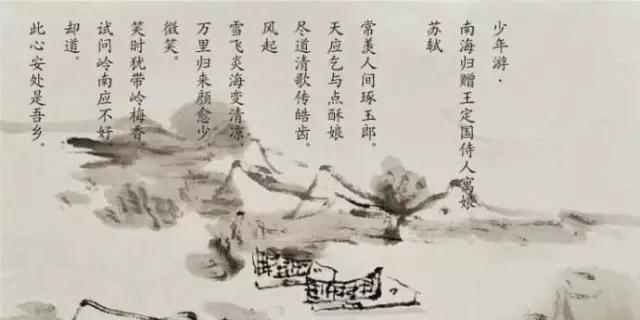 少年游·
南海归赠王定国侍人寓娘
苏轼
常羡人间琢玉郎。
天应乞与点酥娘
尽道清歌传皓齿。
风起
雪飞炎海变清凉
万里归来颜愈少。
微笑。
笑时犹带岭梅香。
试问岭南应不好
却道。
此心安处是吾乡。